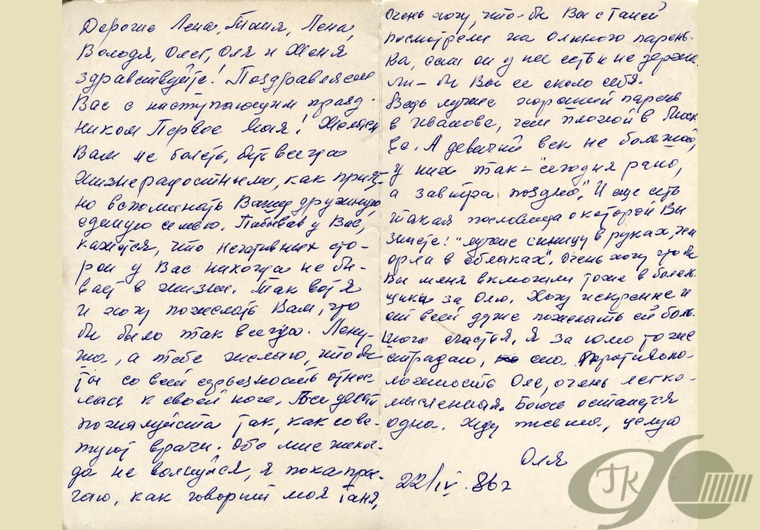 Дорогие Лена, Таня, Лена,
Володя, Олег, Оля и Женя
здравствуйте! Поздравляем
Вас с наступающим празд-
ником Первое Мая! Желаем
Вам не болеть, быть всегда
жизнерадостными, как прият-
но вспоминать Вашу дружную,
единую семью. Побывав у Вас,
кажется, что негативных сто-
рон у Вас никогда не бы-
вает в жизни. Так вот я
и хочу пожелать Вам, что
бы было так всегда. Лену-
, а тебе желаю, чтобы
ты со всей серьезностью отнес-
лась к своей ноге. Все делай
пожалуйста так, как сове-
туют врачи. Обо мне никог-
да не волнуйся, я пока пры-
гаю, как говорит моя Таня,
Очень хочу, что-бы Вы с Таней
посмотрели на Олиного парень-
ка, если он у нее есть и не держа-
ли-бы Вы ее около себя.
Ведь лучше хороший парень
в Иванове, чем плохой в Моск-
ве. А девичий век не большой,
у них так - "сегодня рано,
а завтра поздно". И еще есть
такая пословица о которой Вы
знаете: "лучше синицу в руках, чем
орла в облаках". Очень хочу что-бы
Вы меня включили тоже в болель-
щики за Олю. Хочу искренне и
от всей души пожелать ей боль-
шого счастья. Я за Юлю тоже
страдаю, но она противопо-
ложность Оле, очень легко-
мысленная. Боюсь останется
одна. Жду письмо, целую
Оля
22/IV. 86г
ГК